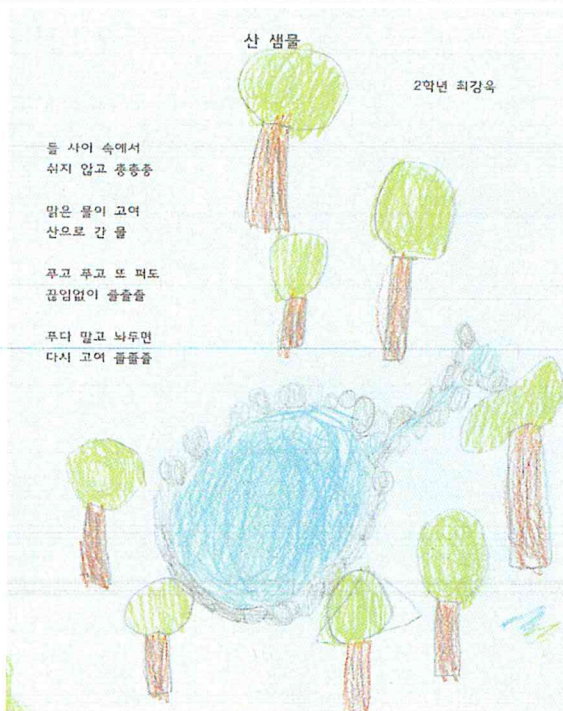 산 샘물
2학년 최강욱
돌 사이 속에서
쉬지 않고 퐁퐁퐁
맑은 물이 고여
산으로 간 물
푸고 푸고 또 퍼도
끊임없이 졸졸졸
푸다 말고 놔두면
다시 고여 졸졸졸